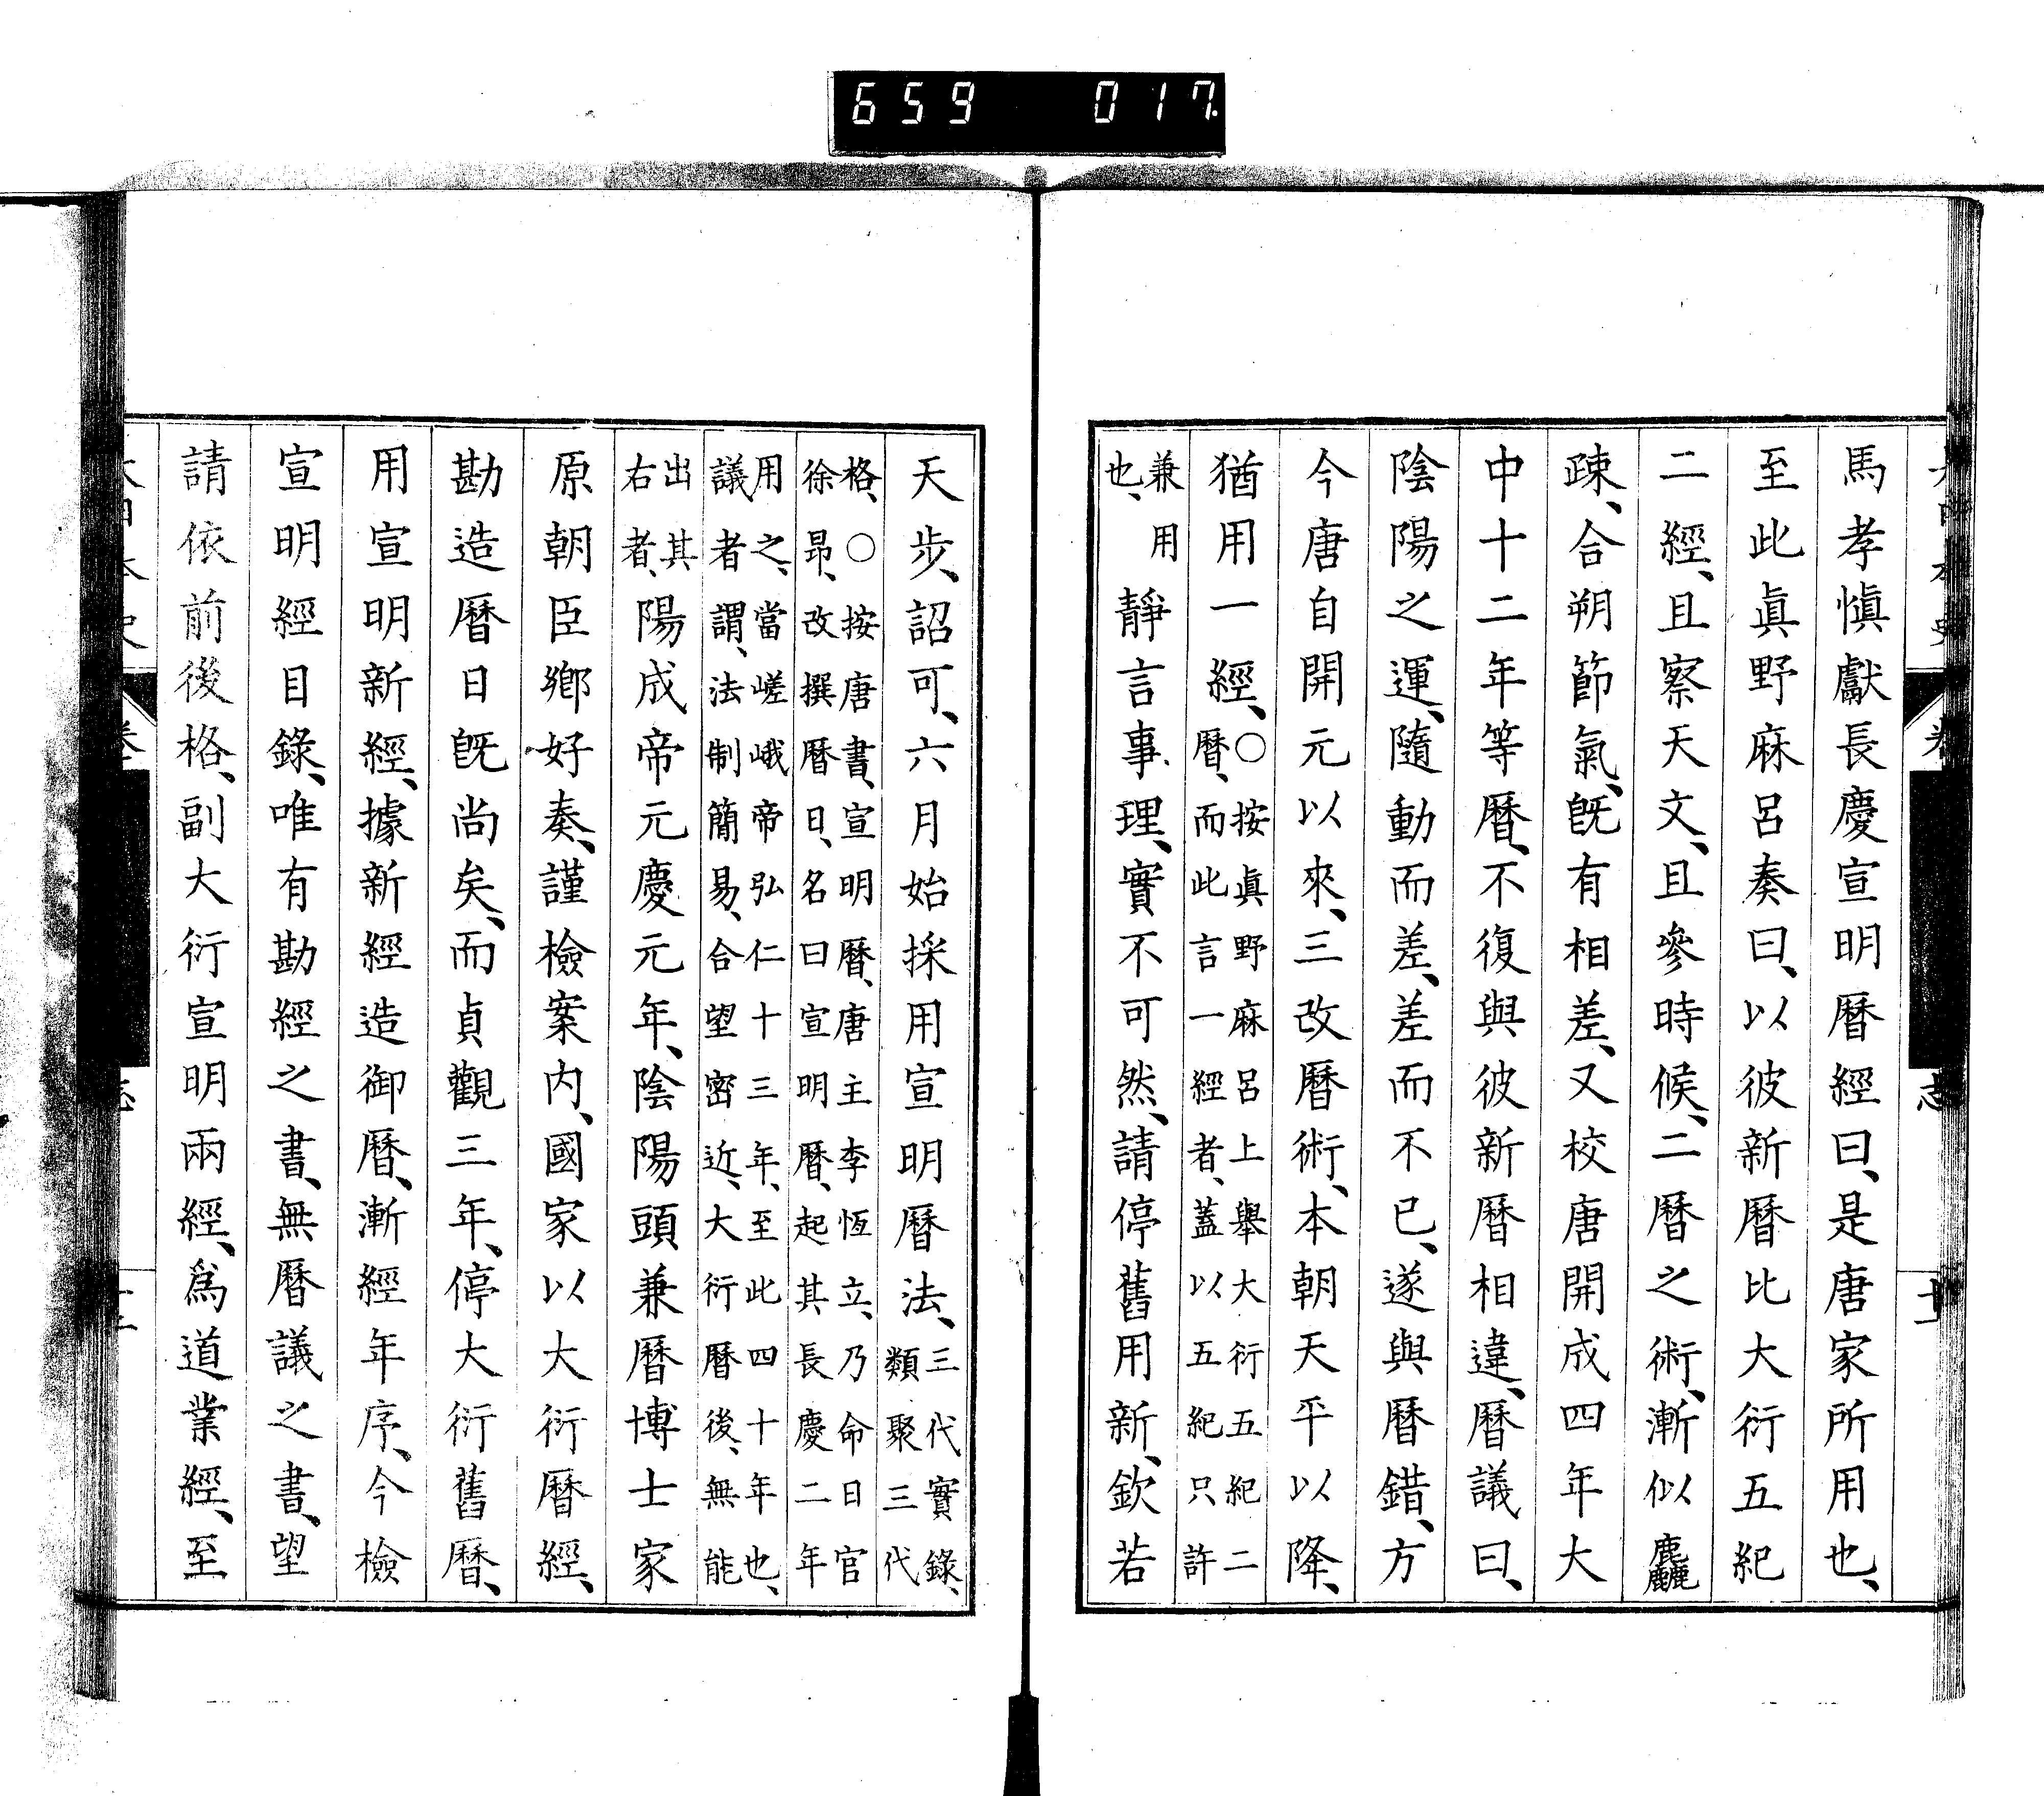 659 017
馬孝愼獻長慶宣明曆經曰、是唐家所用也、
至此眞野麻呂奏曰、以彼新曆比大衍五紀
二經、且察天文、且參時候、二曆之術、漸似麤
疎、合朔節氣、旣有相差、又校唐開成四年大
中十二年等曆、不復與彼新曆相違、曆議曰、
陰陽之運、隨動而差、差而不已、遂與曆錯、方
今唐自開元以來、三改曆術、本朝天平以降、
猶用一經、○按眞野麻呂上舉大衍五紀二
曆、而此言一經者、蓋以五紀只許
兼用
也、靜言事理、實不可然、請停舊用新、欽若
天步、詔可、六月始採用宣明曆法、三代實錄、
類聚三代
格、○按唐書、宣明曆、唐主李恆立、乃命日官
徐昂、改撰曆日、名曰宣明曆、起其長慶二年
用之、當嵯峨帝弘仁十三年、至此四十年也、
議者謂、法制簡易、合望密近、大衍曆後、無能
出其
右者、陽成帝元慶元年、陰陽頭兼曆博士家
原朝臣鄕好奏、謹檢案內、國家以大衍曆經、
勘造曆日旣尚矣、而貞觀三年、停大衍舊曆、
用宣明新經、據新經造御曆、漸經年序、今檢
宣明經目錄、唯有勘經之書、無曆議之書、望
請依前後格、副大衍宣明兩經、爲道業經、至